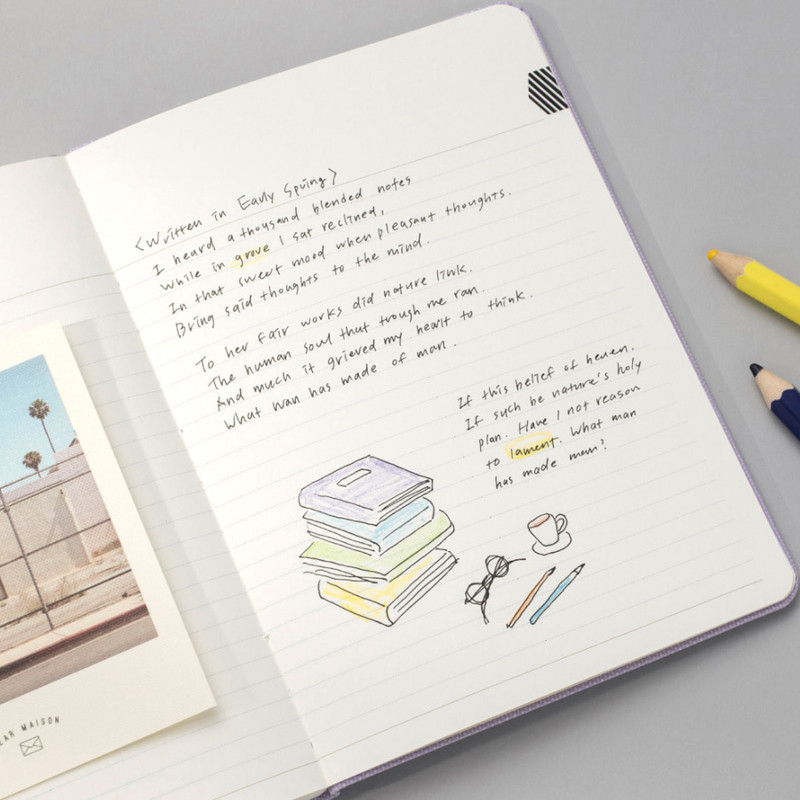 <Written in Early Spring>
I heard a thousand blended notes
while in grove I sat reclined,
In that sweet mood when pleasant thoughts.
Bring said thoughts to the mind.
To her fair works did nature link.
The human soul that trough me ran.
And much it grieved my heart to think.
What wan has made of man.
If this belief of heven.
If such be nature's holy
plan. Have I not reason
to lament. What man
has made mem?
EAR MAISON